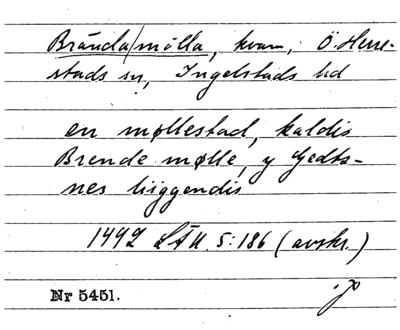 Brända/mölla, kvarn, Ö. Herre-
stads sn, Ingelstads hd
en møllestad, kaldis
Brende mølle, y
nes liggendis
1492 LÄU. 5:186 (avskr.)
Nr 5451.